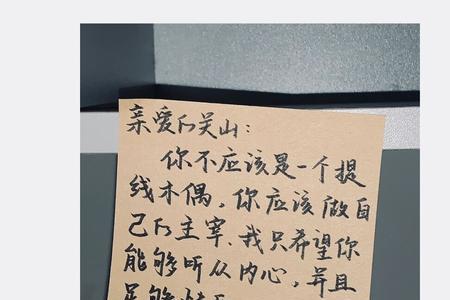 亲爱的关山：
你不应该是一个提
线木偶，你应该做自
己的主宰，我只希望你
能够听从内心，并且
足够